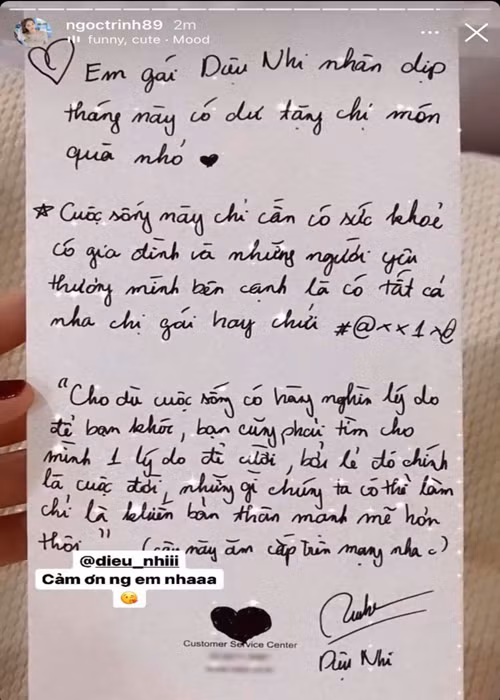 ngoctrinh89 2m
funny, cute · Mood
Em gái Diệu Nhi nhân dịp
tháng này có dư tặng chị món
quà nhỏ ♥
* Cuộc sống này chỉ cần có sức khoẻ
có gia đình và những người yêu
thương mình bên cạnh là có tất cả
nha chị gái hay chửi #@××1
"Cho dù cuộc sống có hàng nghìn lý do
để bạn khóc, bạn cũng phải tìm cho
mình 1 lý do để cười, bởi lẽ đó chính
là cuộc đời, những gì chúng ta có thể làm
chỉ là khiến bản thân mạnh mẽ hơn
thôi" (câu này ăn cắp trên mạng nha c)
@dieu_nhiii
Cảm ơn ng em nhaaa
😘
Customer Service Center
Diệu Nhi